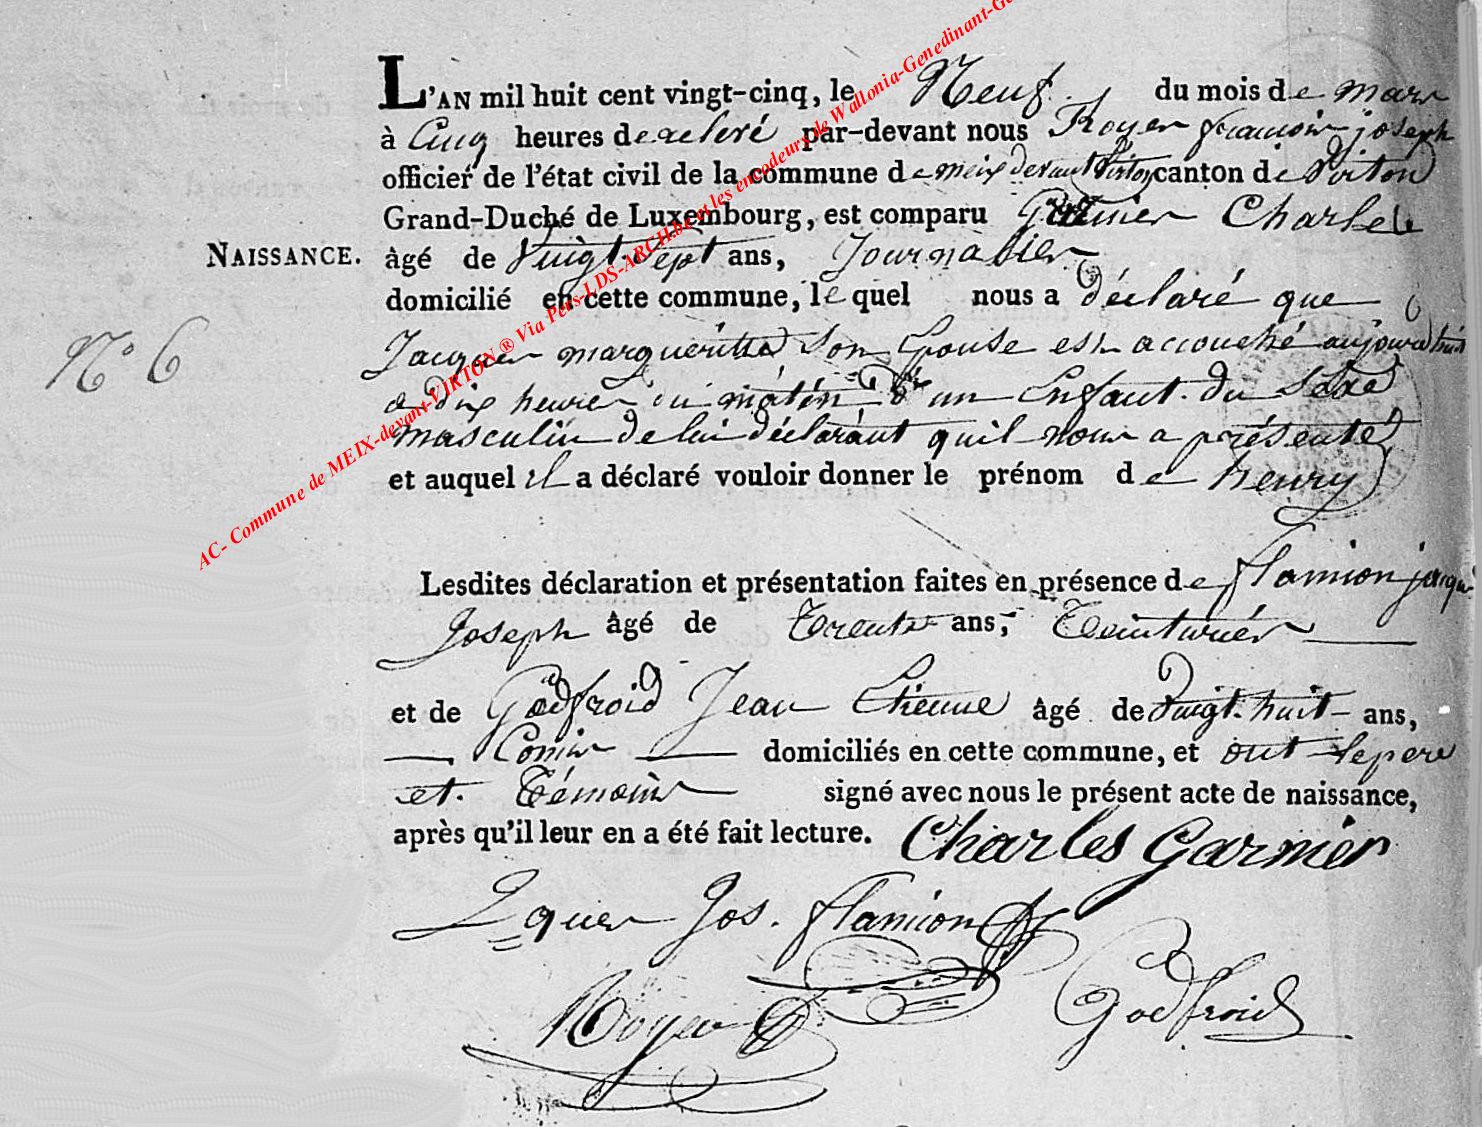 L'AN mil huit cent vingt-cinq, le Neuf du mois de mars
à Cinq heures de relevé par-devant nous Royer francois joseph
officier de l'état civil de la commune de meix devant Virton canton de Virton
Grand-Duché de Luxembourg, est comparu Garnier Charle
NAISSANCE. âgé de Vingt-Sept ans, Journalier
domicilié en cette commune, le quel nous a déclaré que
N° 6
Jaques margueritte son Epouse est accouché aujourd'hui
a dix heures du matin d'un Enfant du Sexe
masculin de lui déclarant quil nous a présenté
et auquel il a déclaré vouloir donner le prénom de henry
Lesdites déclaration et présentation faites en présence de flamion jacque
Joseph âgé de Trente ans, Teinturier
et de Godfroid Jean Etienne âgé de Vingt-huit ans,
domiciliés en cette commune, et ont le pere
et Témoins signé avec nous le présent acte de naissance,
après qu'il leur en a été fait lecture. Charles Garnier
Jques Jos. flamion
Royer Godfroid
AC- Commune de MEIX-devant-VIRTON ® Via Pers-LDS-ARCH.be et les encodeurs de Wallonia-Genedinant-Ge